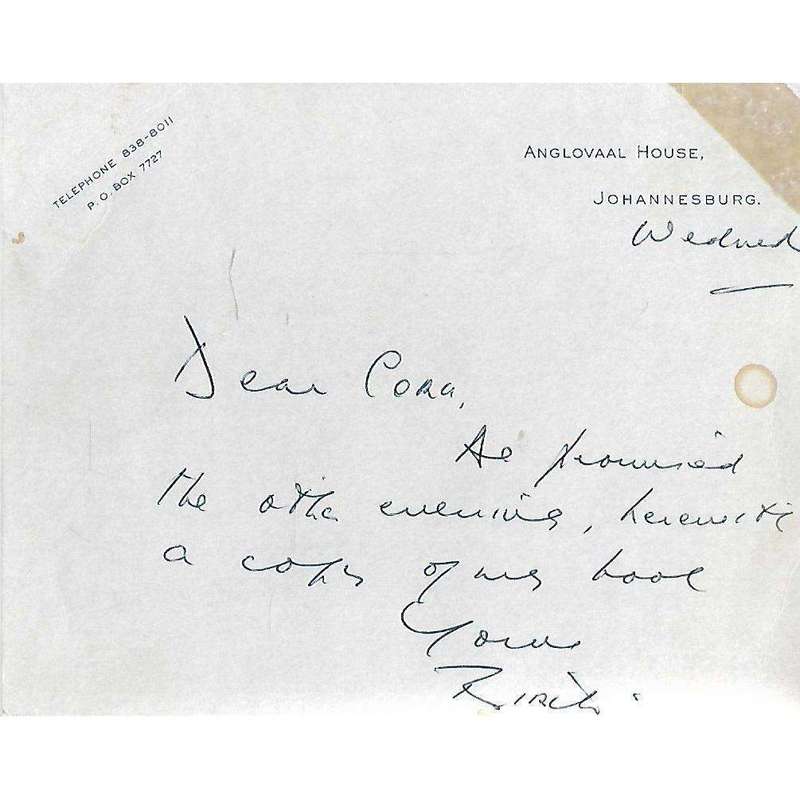 TELEPHONE 838-8011
P.O. BOX 7727
ANGLOVAAL HOUSE,
JOHANNESBURG.
Wednesd
Dear Cora,
As promised
the other evening, herewith
a copy of my book
Yours